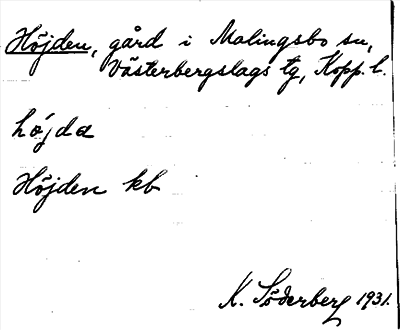 Höjden, gård i Malingsbo sn,
Västerbergslags tg, Kopp. l.
höjda
Höjden kb
K. Söderberg 1931.